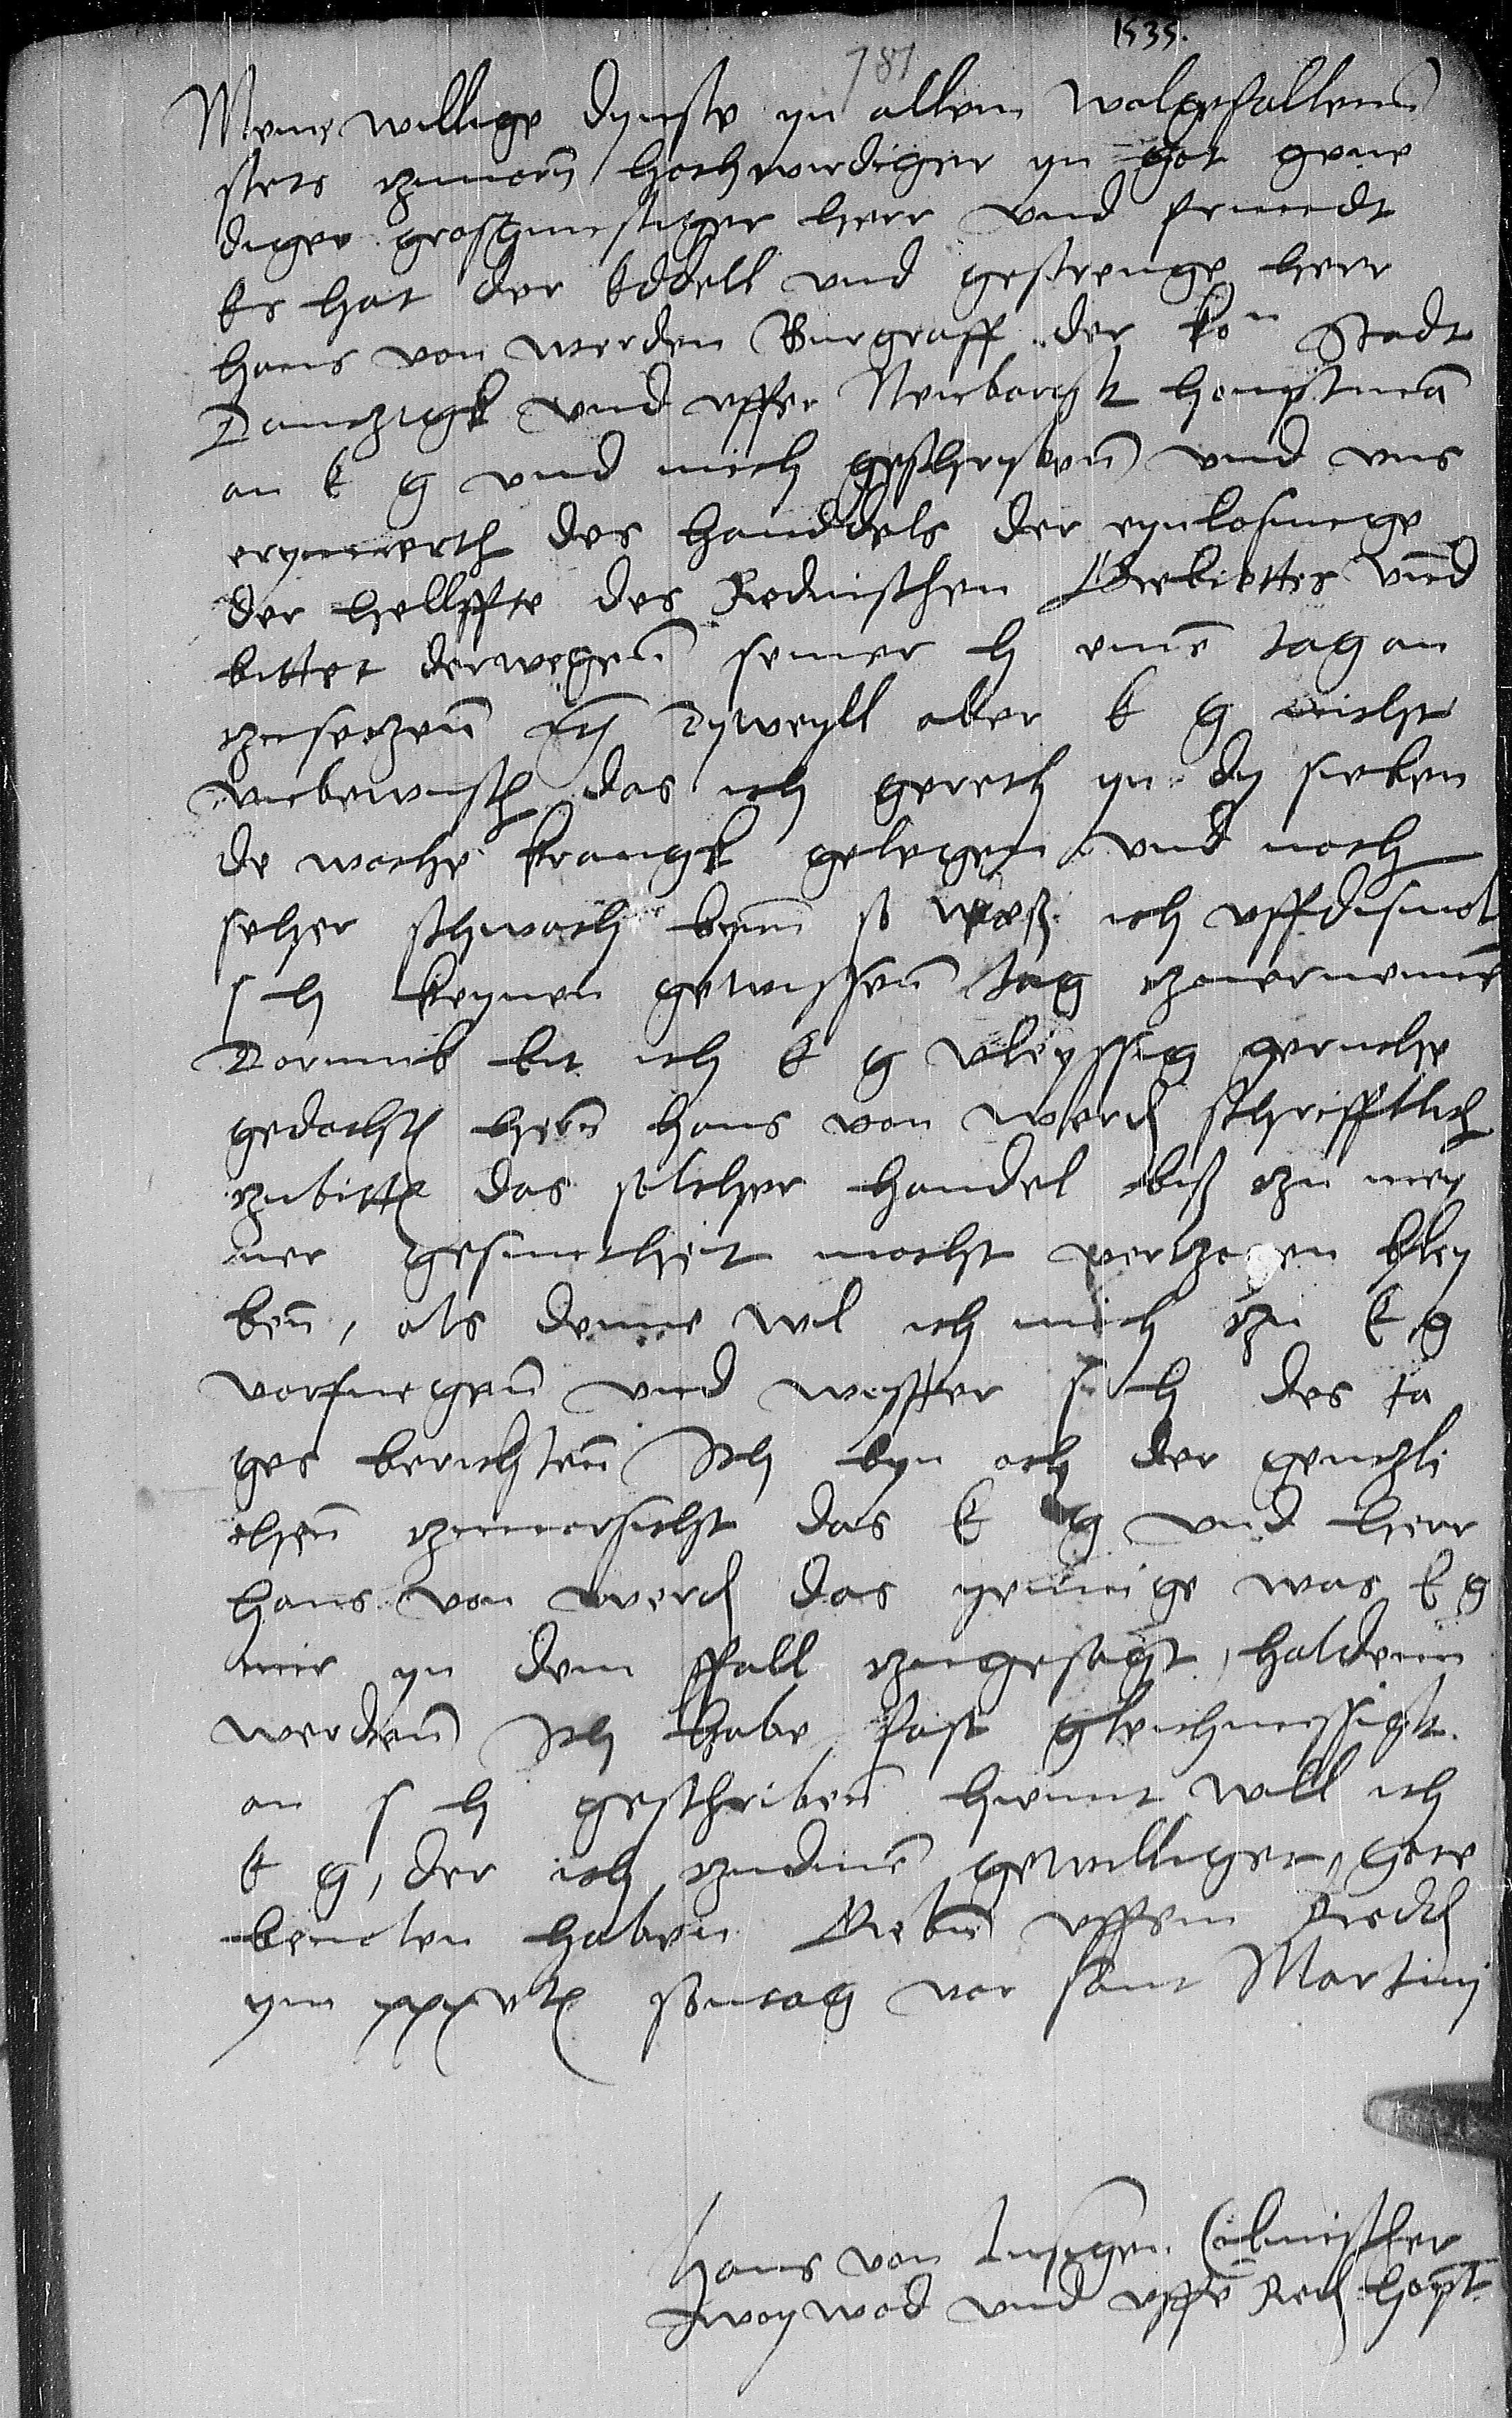 1535.
781
Meine willige dynste yn allem wolgefallenn
stets zuuorn hochwirdiger yn got gene
diger grosgunstiger herr und freundt
Es hat der Eddell und gestrenge herr
hans von werden Burgraff der kon Stadt
Danczigk und uffer Neuborgk houptman
an E g und mich geschrybenn und uns
erynnerth des handdels der eynlosunge
der hellffte des Rednischen Gebiettes und
bittet derwegenn seiner h einen tag an
zusetzenn dyweyll aber E g nicht
unbewust das ich gereth yn dy sieben
de woche krangk gelegen und noch
seher schwach bynn so weis ich uffdismol
s h keynen gewissenn tag zuernennen
Dorumb bit ich E g vleyssig geruche
gedochten hern hans von werden schrifftlich
zubitten das solcher handel bis zu mey
ner gesuntheit mocht verzogen bley
ben, als denne wil ich mich zu E g
vorfuegenn und weytter s h des ta
ges berichtenn Ich byn och der genczli
chen zuuorsicht das E g und herr
hans von werden das yennige was E g
mir yn dem ffall zugesagt, haldenn
werdenn Ich habe fast gleichmessigk
an s h geschriben hiemit will ich
E g, der ich zudinen gewilliget, gote
beuolen haben Geben uffem Redden
ym xxxvten sontag vor sant Martinj
Hans von Lusigen Colmischer
woywod und uffem Reden hopt